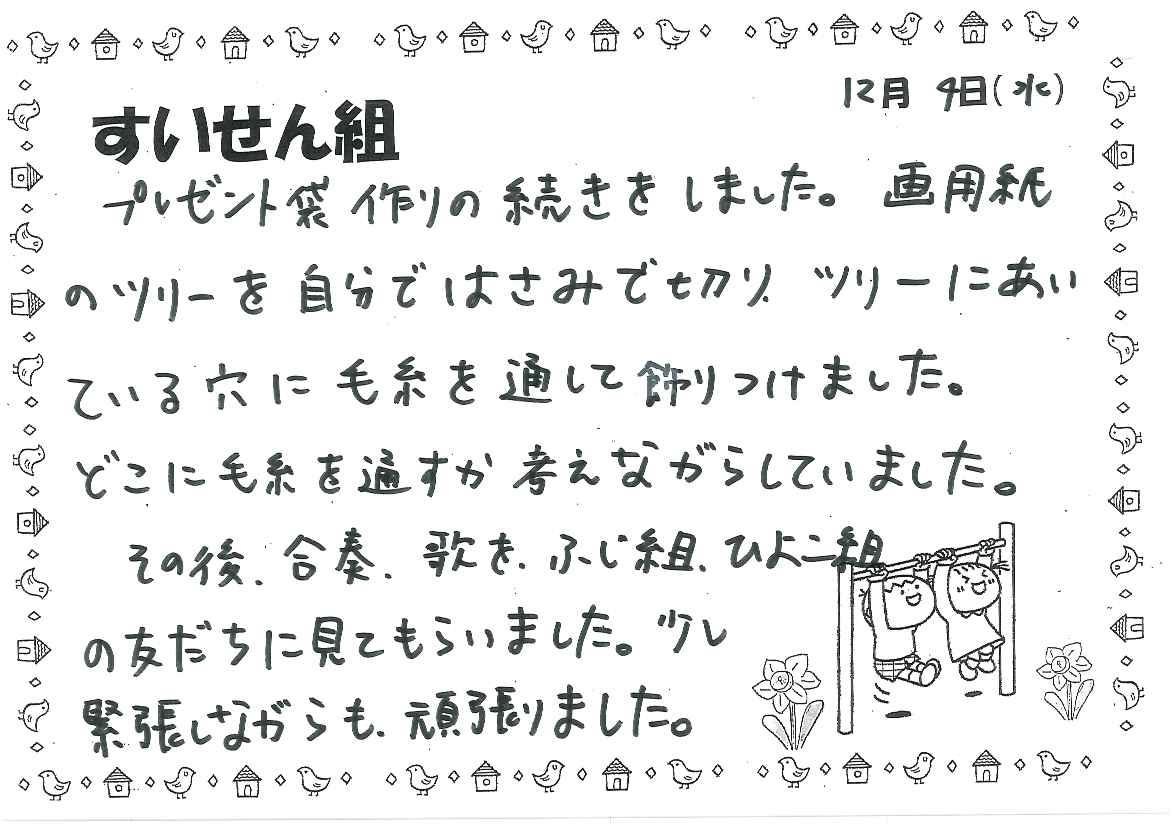 12月 4日(水)
すいせん組
プレゼント袋 作りの続きをしました。 画用紙
のツリーを自分ではさみで切り、ツリーにあい
ている穴に毛糸を通して飾りつけました。
どこに毛糸を通すか考えながらしていました。
その後、合奏、歌を、ふじ組、ひよこ組
の友だちに見てもらいました。少し
緊張しながらも、頑張りました。